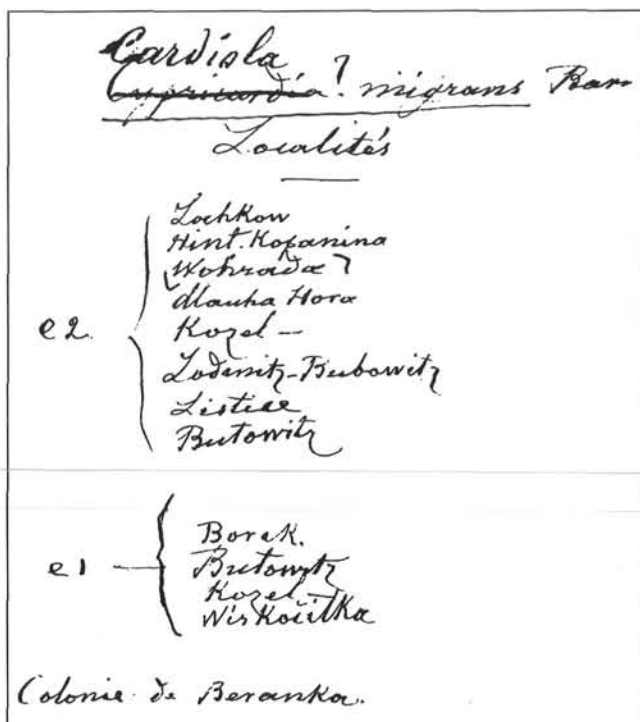 Cardiola
Cypricardia? migrans Barr
Localités
e2
Lochkow
Hint. Kopanina
Wohrada?
dlauha Hora
Kozel —
Lodenitz-Bubowitz
Listice
Butowitz
e1
Borek.
Butowitz
Kozel
Wiskočilka
Colonie de Beranka.